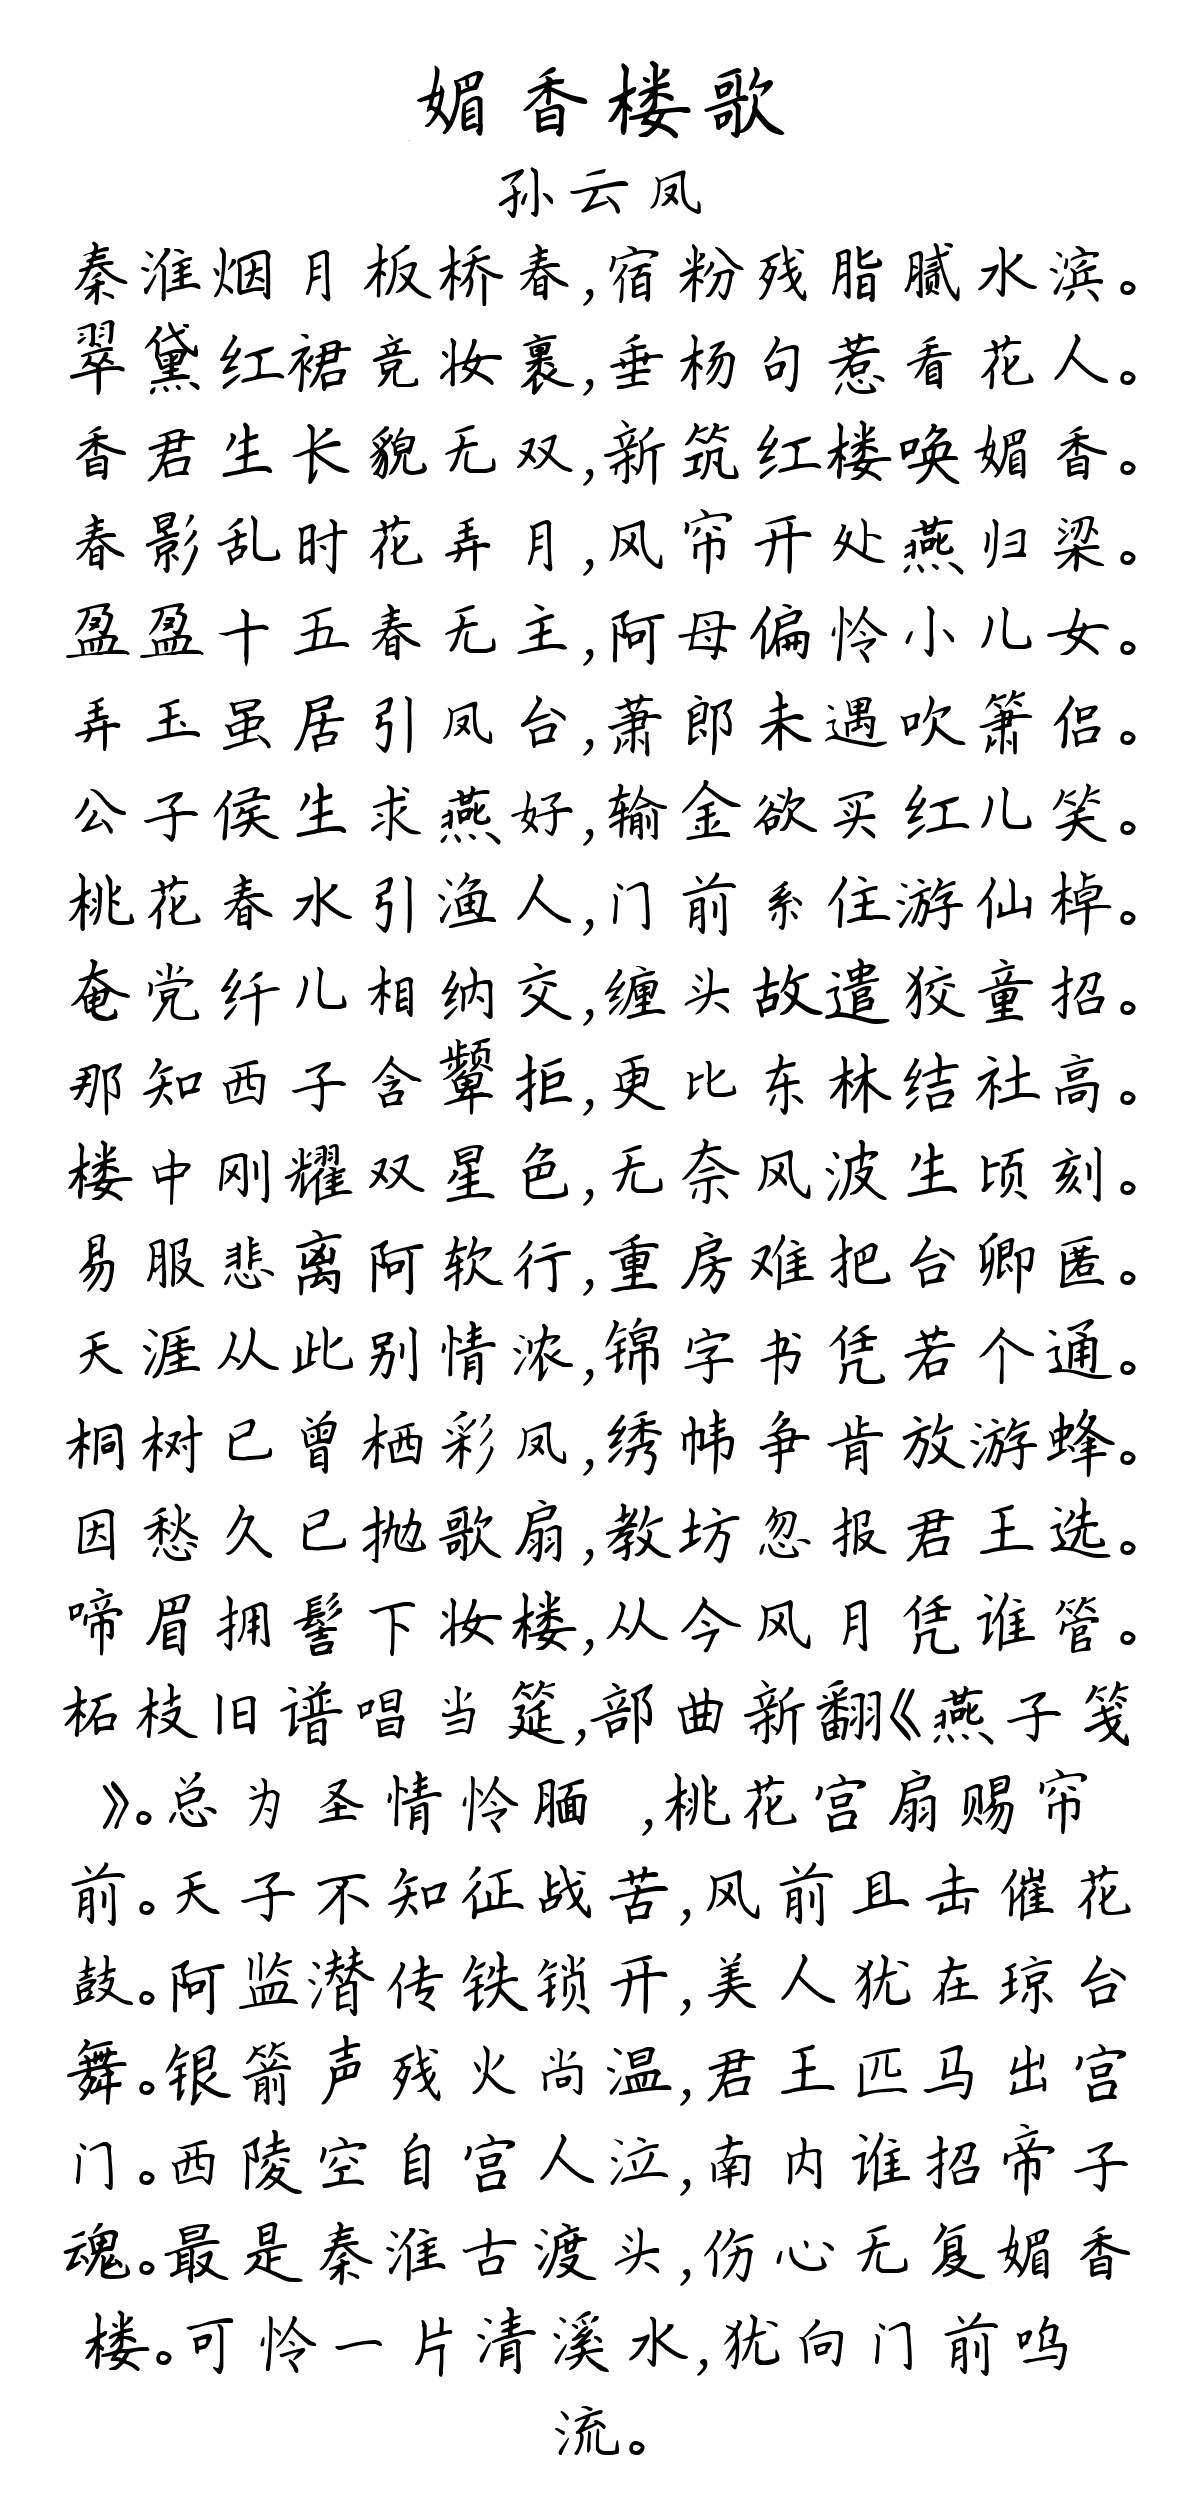 媚香楼歌
孙云凤
秦淮烟月板桥春,宿粉残脂腻水滨。
翠黛红裙竞妆裹,垂杨句惹看花人。
香君生长貌无双,新筑红楼唤媚香。
春影乱时花弄月,风帘开处燕归梁。
盈盈十五春无主,阿母偏怜小儿女。
弄玉虽居引凤台,萧郎未遇吹箫侣。
公子侯生求燕好,输金欲买红儿笑。
桃花春水引渔人,门前系住游仙棹。
奄党纤儿相纳交,缠头故遣狡童招。
那知西子含颦拒,更比东林结社高。
楼中刚耀双星色,无奈风波生顷刻。
易服悲离阿软行,重房难把台卿匿。
天涯从此别情浓,锦字书凭若个通。
桐树已曾栖彩凤,绣帏争肯放游蜂。
因愁久已抛歌扇,教坊忽报君王选。
啼眉拥髻下妆楼,从今风月凭谁管。
柘枝旧谱唱当筵,部曲新翻《燕子笺
》。总为圣情怜腼 ,桃花宫扇赐帘
前。天子不知征战苦,风前且击催花
鼓。阿监潜传铁锁开,美人犹在琼台
舞。银箭声残火尚温,君王匹马出宫
门。西陵空自宫人泣,南内谁招帝子
魂。最是秦淮古渡头,伤心无复媚香
楼。可怜一片清溪水,犹向门前呜
流。